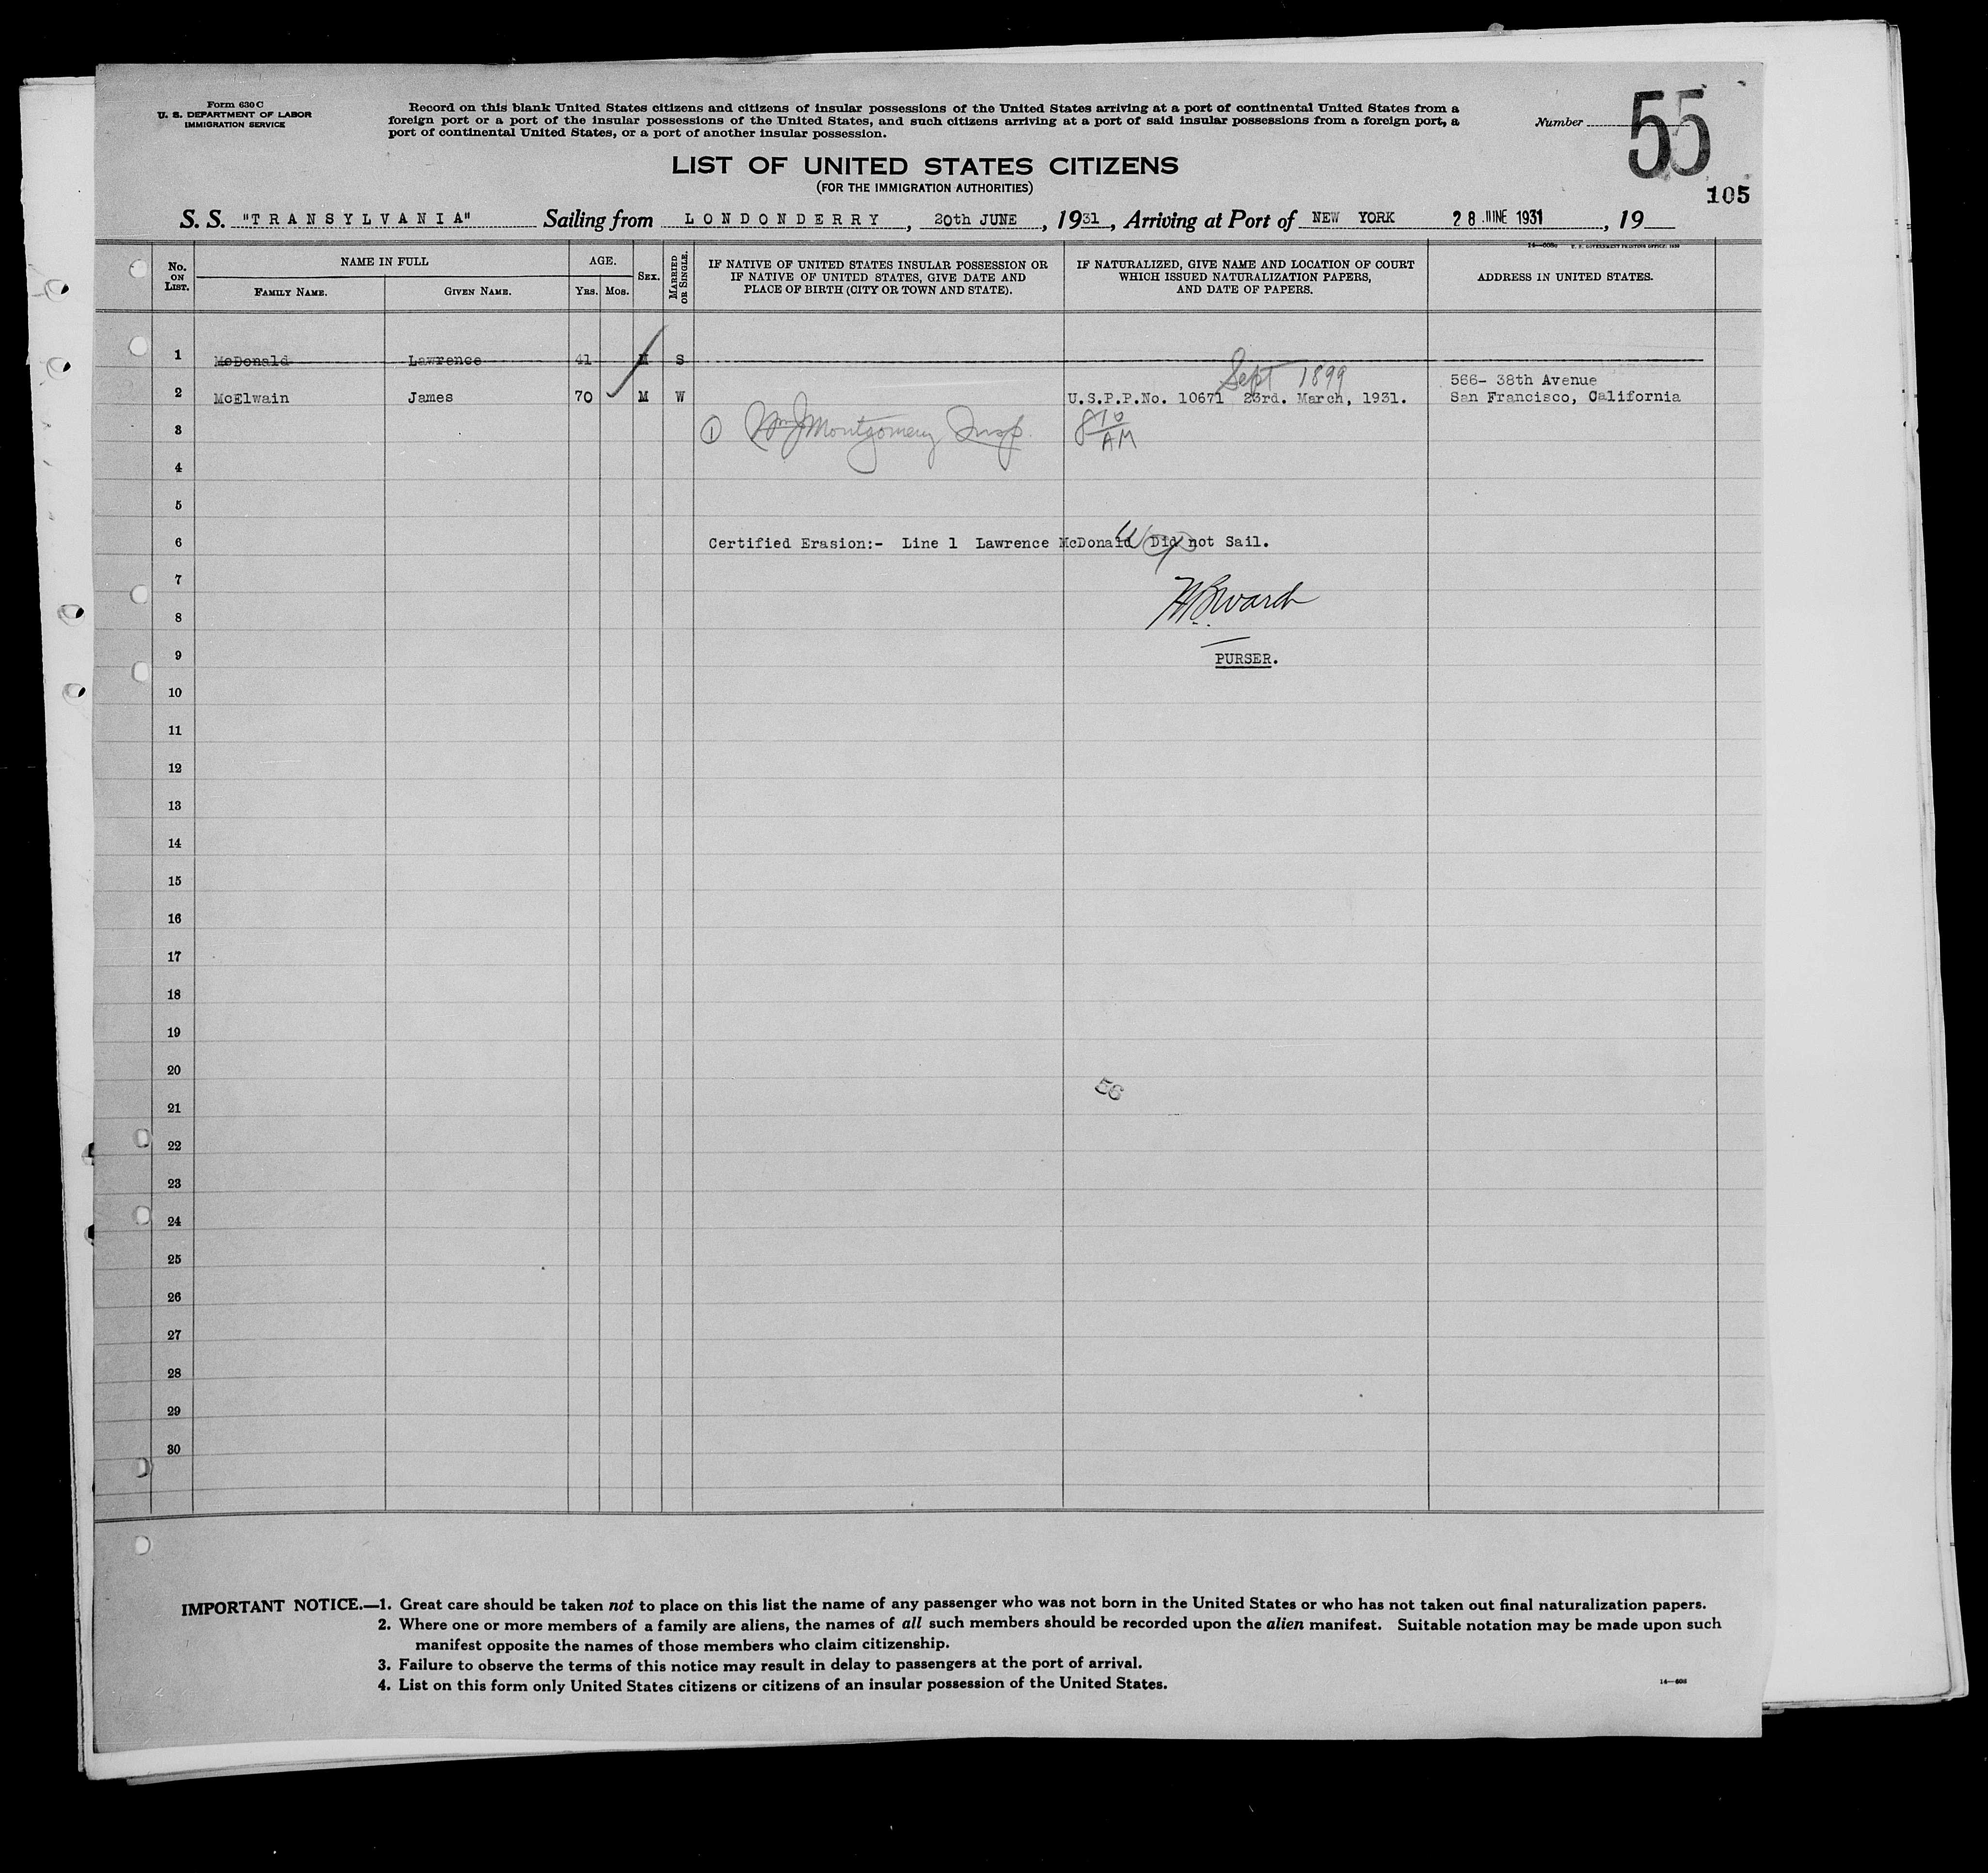 Form 630 C
U. S. DEPARTMENT OF LABOR
IMMIGRATION SERVICE
Record on this blank United States citizens and citizens of insular possessions of the United States arriving at a port of continental United States from a
foreign port or a port of the insular possessions of the United States, and such citizens arriving at a port of said insular possessions from a foreign port, a
port of continental United States, or a port of another insular possession.
Number 55
105
LIST OF UNITED STATES CITIZENS
(FOR THE IMMIGRATION AUTHORITIES)
S. S. "TRANSYLVANIA" Sailing from LONDONDERRY, 20th JUNE, 1931, Arriving at Port of NEW YORK 28 JUNE 1931, 19
U. S. GOVERNMENT PRINTING OFFICE: 1930
No. ON LIST.
NAME IN FULL
FAMILY NAME.
GIVEN NAME.
AGE.
YRS. MOS.
SEX.
MARRIED OR SINGLE.
IF NATIVE OF UNITED STATES INSULAR POSSESSION OR
IF NATIVE OF UNITED STATES, GIVE DATE AND
PLACE OF BIRTH (CITY OR TOWN AND STATE).
IF NATURALIZED, GIVE NAME AND LOCATION OF COURT
WHICH ISSUED NATURALIZATION PAPERS,
AND DATE OF PAPERS.
ADDRESS IN UNITED STATES.
1 McDonald Lawrence 41 M S
Sept 1899
566- 38th Avenue
2 McElwain James 70 M W U.S.P.P.No. 10671 23rd. March, 1931. San Francisco, California
3 1 Wm J Montgomery Insp. 8 10 AM
4
5
6 Certified Erasion:- Line 1 Lawrence McDonald Did not Sail.
7
8
9 PURSER.
10
11
12
13
14
15
16
17
18
19
20
56
21
22
23
24
25
26
27
28
29
30
IMPORTANT NOTICE.—1. Great care should be taken not to place on this list the name of any passenger who was not born in the United States or who has not taken out final naturalization papers.
2. Where one or more members of a family are aliens, the names of all such members should be recorded upon the alien manifest. Suitable notation may be made upon such
manifest opposite the names of those members who claim citizenship.
3. Failure to observe the terms of this notice may result in delay to passengers at the port of arrival.
4. List on this form only United States citizens or citizens of an insular possession of the United States.